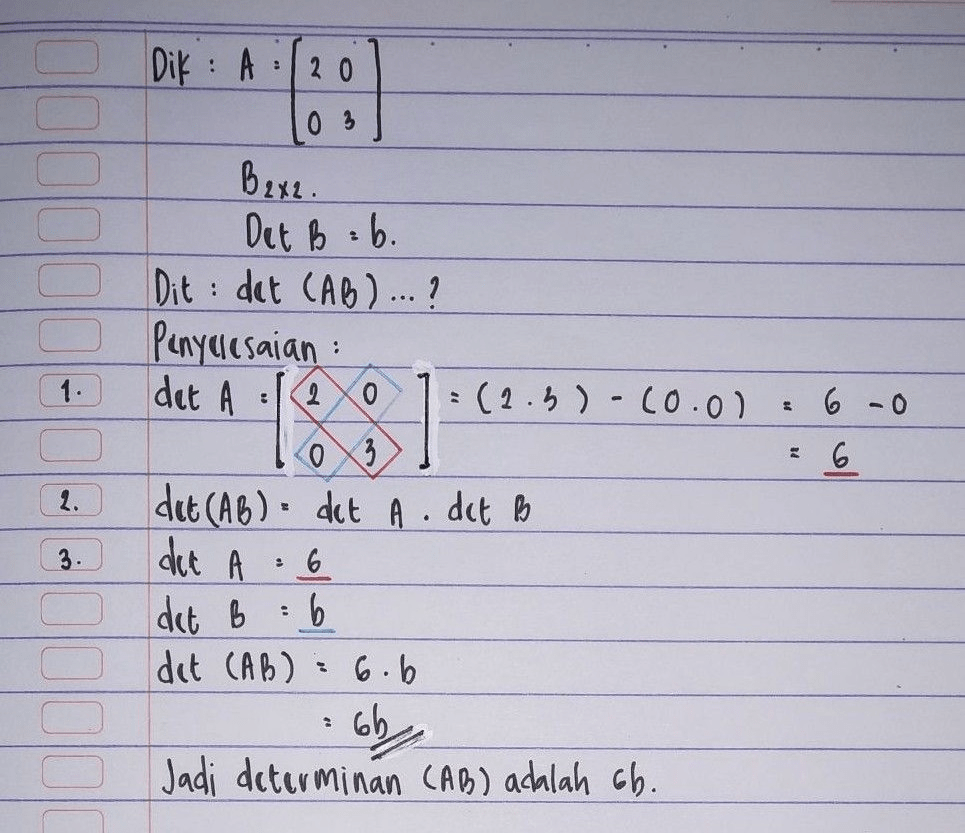 Dik : A = [ 2 0
0 3 ]
B2x2.
Det B = b.
Dit : det (AB) ... ?
Penyelesaian :
1. det A = [ 2 0 ] = (2 . 3) - (0.0) = 6 - 0
0 3 = 6
2. det (AB) = det A . det B
3. det A = 6
det B = b
det (AB) = 6 . b
= 6b
Jadi determinan (AB) adalah 6b.